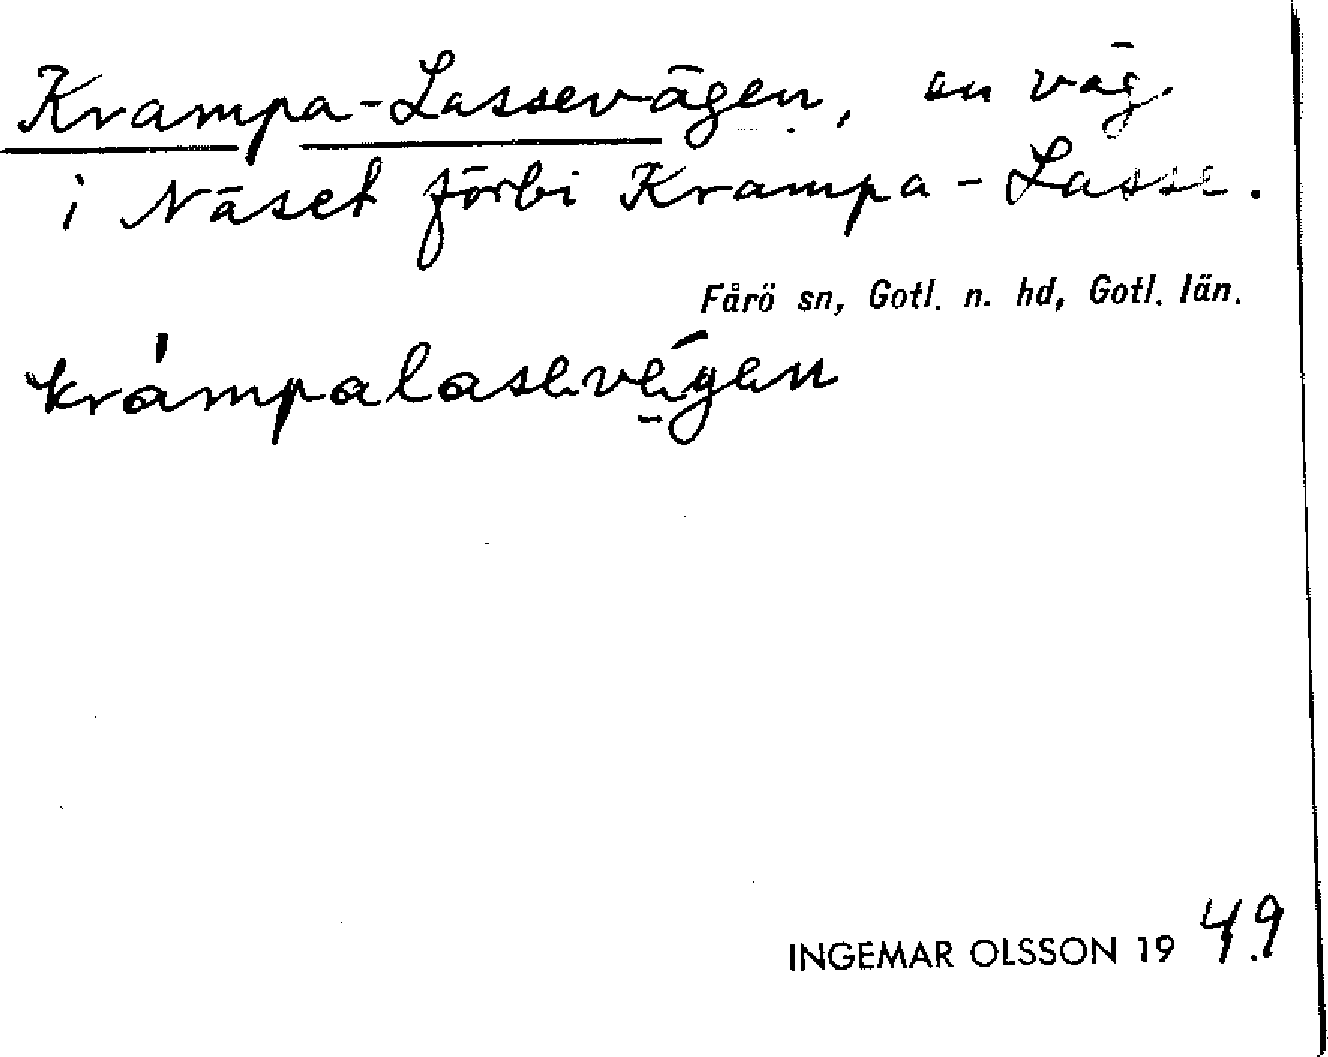 Krampa-Lassevägen, en väg
i Näset förbi Krampa-Lasse.
Fårö sn, Gotl. n. hd, Gotl. län.
krámpalasevégen
INGEMAR OLSSON 1949